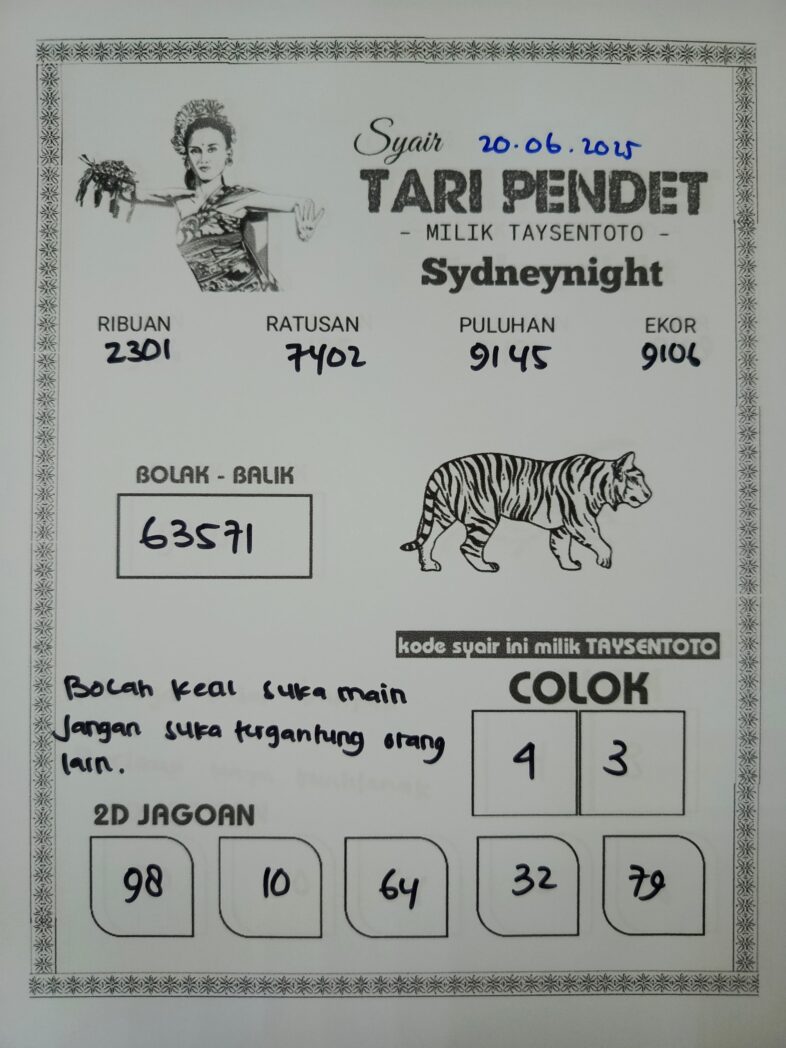 Syair 20.06.2025
TARI PENDET
- MILIK TAYSENTOTO -
Sydneynight
RIBUAN RATUSAN PULUHAN EKOR
2301 7402 9145 9106
BOLAK - BALIK
63571
kode syair ini milik TAYSENTOTO
Bocah kecil suka main
Jangan suka tergantung orang
lain.
COLOK
4 3
2D JAGOAN
98 10 64 32 79